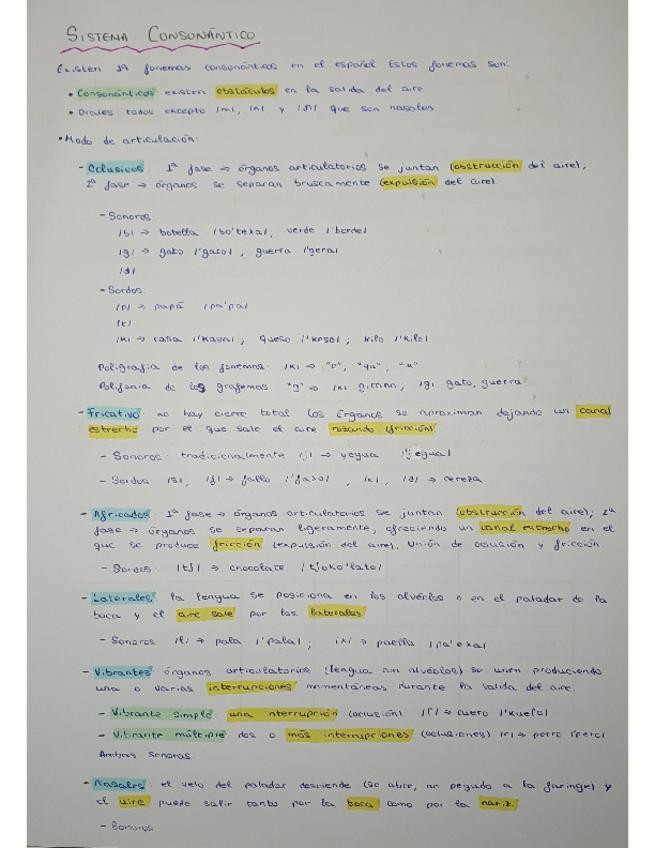 SISTEMA CONSONÁNTICO
Existen 19 fonemas consonánticos en el español. Estos fonemas son:
• Consonánticos: existen obstáculos en la salida del aire
• Orales: todos excepto /m/, /n/ y /ɲ/ que son nasales
• Modo de articulación:
- Oclusivos: 1ª fase → órganos articulatorios se juntan (obstrucción del aire);
2ª fase → órganos se separan bruscamente (expulsión del aire).
- Sonoros:
/b/ → botella /bo'teʎa/; verde /'berde/
/g/ → gato /'gato/; guerra /'gera/
/d/
- Sordos:
/p/ → papá /pa'pa/
/t/
/k/ → caña; queso /'keso/; kilo /'kilo/
Poligrafía de los fonemas: /k/ → "c", "qu", "k"
Polifonía de los grafemas: "g" → /x/; /g/ gato, guerra
- Fricativo: no hay cierre total. Los órganos se aproximan dejando un canal
estrecho por el que sale el aire rozando (fricción).
- Sonoros: tradicionalmente /ʝ/ → yegua /'ʝegua/
- Sordos: /s/, /f/ → fallo, /x/, /θ/ → cereza
- Africados: 1ª fase → órganos articulatorios se juntan (obstrucción del aire); 2ª
fase → órganos se separan ligeramente, ofreciendo un canal estrecho en el
que se produce fricción (expulsión del aire). Unión de oclusión y fricción.
- Sordos: /tʃ/ → chocolate /tʃoko'late/
- Laterales: la lengua se posiciona en los alvéolos o en el paladar de la
boca y el aire sale por los laterales.
- Sonoros: /l/ → pala /'pala/; /ʎ/ → paella /pa'eʎa/
- Vibrantes: órganos articulatorios (lengua alvéolos) se unen produciendo
una o varias interrupciones momentáneas durante la salida del aire.
- Vibrante simple: una interrupción (oclusión) /ɾ/ → cuero /'kueɾo/
- Vibrante múltiple: dos o más interrupciones (oclusiones) /r/ → perro
Ambas sonoras
- Nasales: el velo del paladar desciende (se abre, no pegado a la faringe) y
el aire puede salir tanto por la boca como por la nariz.
- Sonoros: